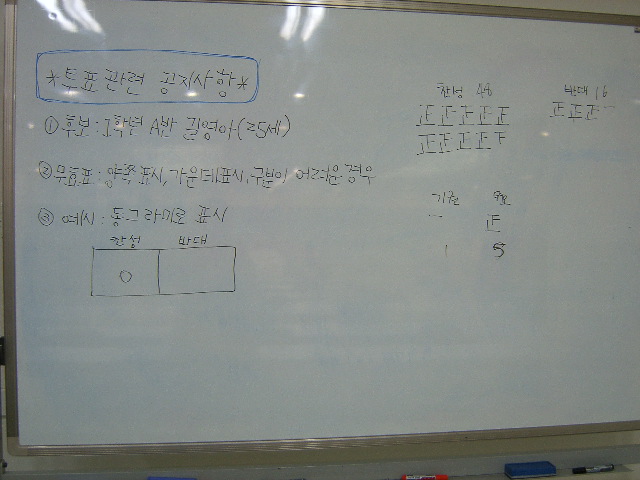 *투표관련 공지사항*
① 후보 : 1학년 A반 길영아 (25세)
② 무효표 : 양쪽표시, 가운데표시, 구분이 어려운 경우
③ 예시 : 동그라미로 표시
찬성 반대
○
찬성 48
正正正正正
正正正正下
반대 16
正正正一
기권 무효
一 正
1 5